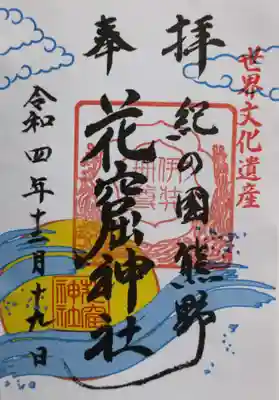 世界文化遺産
奉拝
紀の国熊野
花窟神社
令和四年十二月十九日
花窟神社